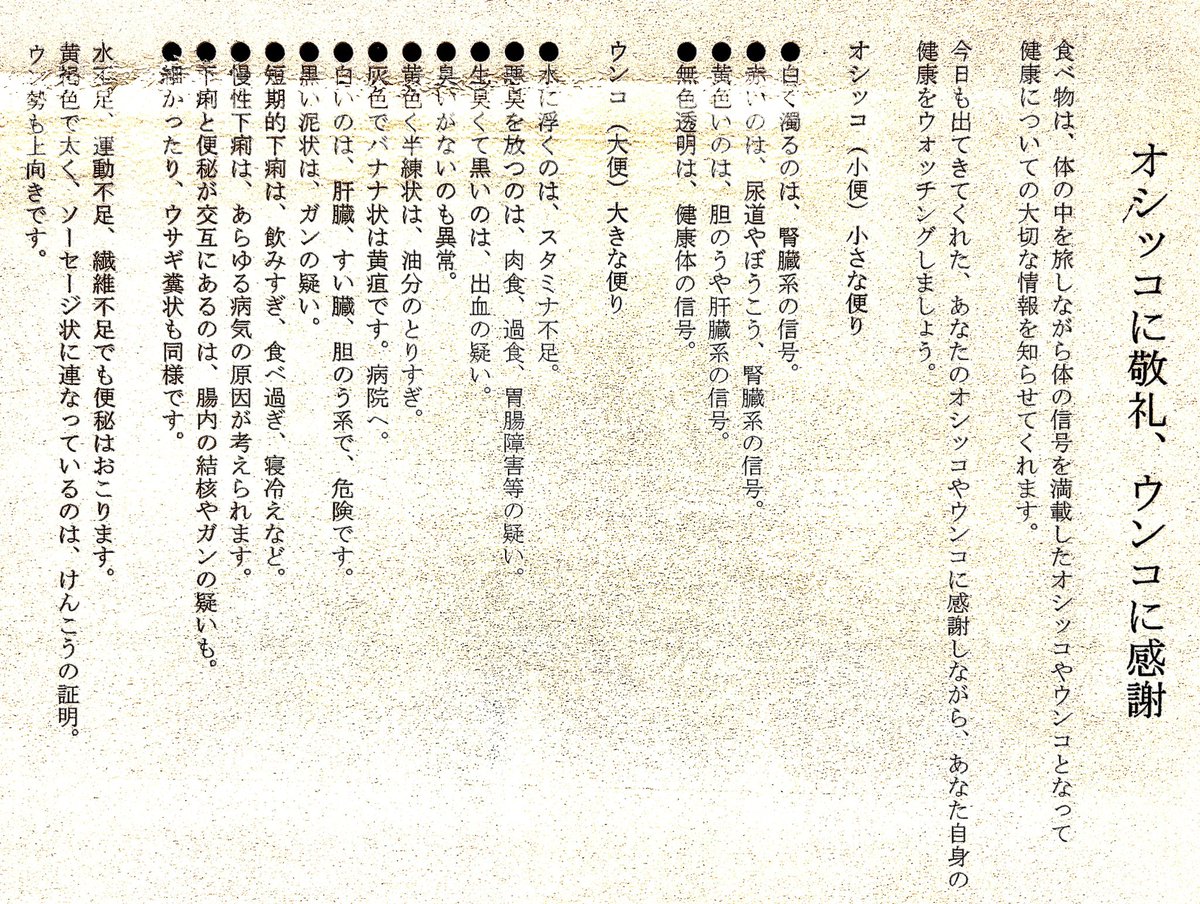 オシッコに敬礼、ウンコに感謝
食べ物は、体の中を旅しながら体の信号を満載したオシッコやウンコとなって
健康についての大切な情報を知らせてくれます。
今日も出てきてくれた、あなたのオシッコやウンコに感謝しながら、あなた自身の
健康をウォッチングしましょう。
オシッコ（小便）小さな便り
●白く濁るのは、腎臓系の信号。
●赤いのは、尿道やぼうこう、腎臓系の信号。
●黄色いのは、胆のうや肝臓系の信号。
●無色透明は、健康体の信号。
ウンコ（大便）大きな便り
●水に浮くのは、スタミナ不足。
●悪臭を放つのは、肉食、過食、胃腸障害等の疑い。
●生臭くて黒いのは、出血の疑い。
●臭いがないのも異常。
●黄色く半練状は、油分のとりすぎ。
●灰色でバナナ状は黄疸です。病院へ。
●白いのは、肝臓、すい臓、胆のう系で、危険です。
●黒い泥状は、ガンの疑い。
●短期的下痢は、飲みすぎ、食べ過ぎ、寝冷えなど。
●慢性下痢は、あらゆる病気の原因が考えられます。
●下痢と便秘が交互にあるのは、腸内の結核やガンの疑いも。
●細かったり、ウサギ糞状も同様です。
水不足、運動不足、繊維不足でも便秘はおこります。
黄褐色で太く、ソーセージ状に連なっているのは、けんこうの証明。
ウン勢も上向きです。